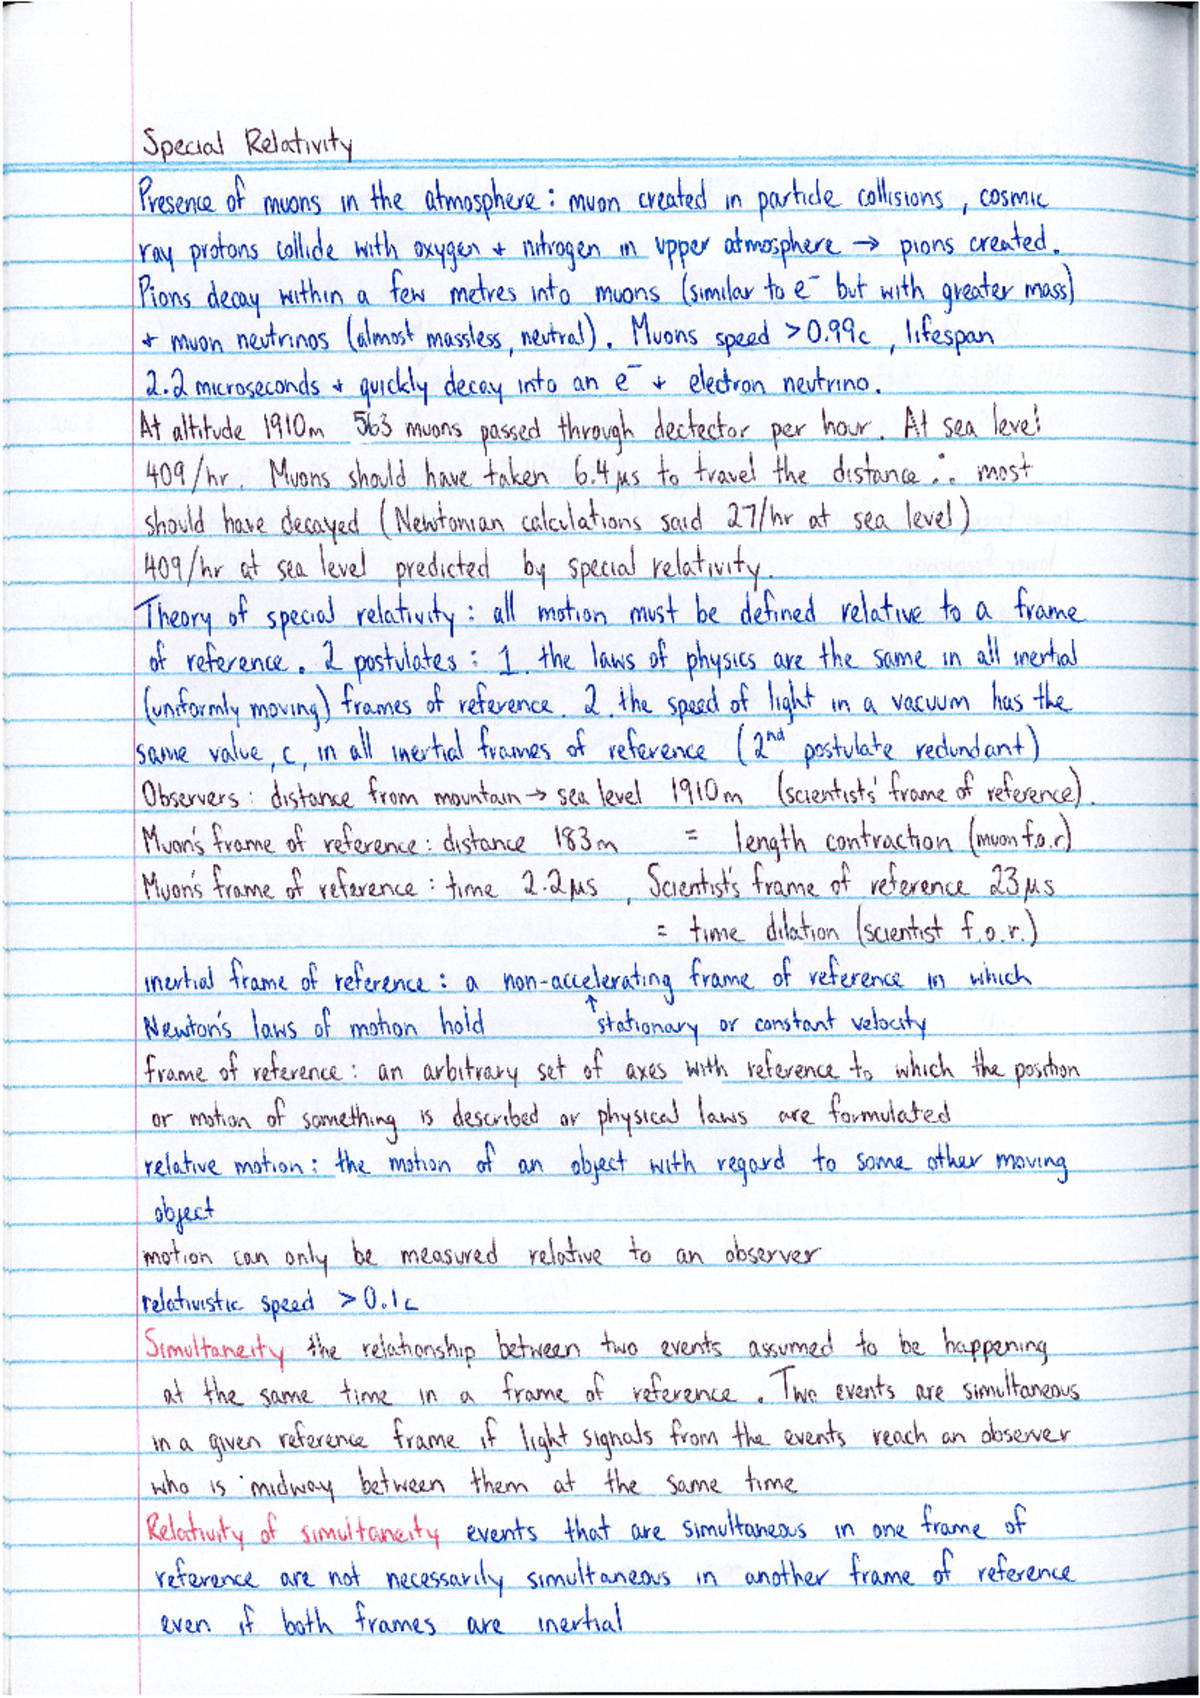 Special Relativity
Presence of muons in the atmosphere : muon created in particle collisions , cosmic
ray protons collide with oxygen + nitrogen in upper atmosphere → pions created.
Pions decay within a few metres into muons (similar to e⁻ but with greater mass)
+ muon neutrinos (almost massless, neutral). Muons speed >0.99c , lifespan
2.2 microseconds + quickly decay into an e⁻ + electron neutrino.
At altitude 1910m 563 muons passed through dectector per hour. At sea level
409/hr. Muons should have taken 6.4μs to travel the distance ∴ most
should have decayed (Newtonian calculations said 27/hr at sea level)
409/hr at sea level predicted by special relativity.
Theory of special relativity : all motion must be defined relative to a frame
of reference. 2 postulates : 1. the laws of physics are the same in all inertial
(uniformly moving) frames of reference. 2. the speed of light in a vacuum has the
same value, c, in all inertial frames of reference (2nd postulate redundant)
Observers : distance from mountain → sea level 1910m (scientists' frame of reference).
Muon's frame of reference : distance 183m = length contraction (muon f.o.r)
Muon's frame of reference : time 2.2μs , Scientist's frame of reference 23μs
= time dilation (scientist f.o.r.)
inertial frame of reference : a non-accelerating frame of reference in which
Newton's laws of motion hold ↑ stationary or constant velocity
frame of reference : an arbitrary set of axes with reference to which the position
or motion of something is described or physical laws are formulated
relative motion : the motion of an object with regard to some other moving
object
motion can only be measured relative to an observer
relativistic speed >0.1c
Simultaneity the relationship between two events assumed to be happening
at the same time in a frame of reference . Two events are simultaneous
in a given reference frame if light signals from the events reach an observer
who is midway between them at the same time
Relativity of simultaneity events that are simultaneous in one frame of
reference are not necessarily simultaneous in another frame of reference
even if both frames are inertial